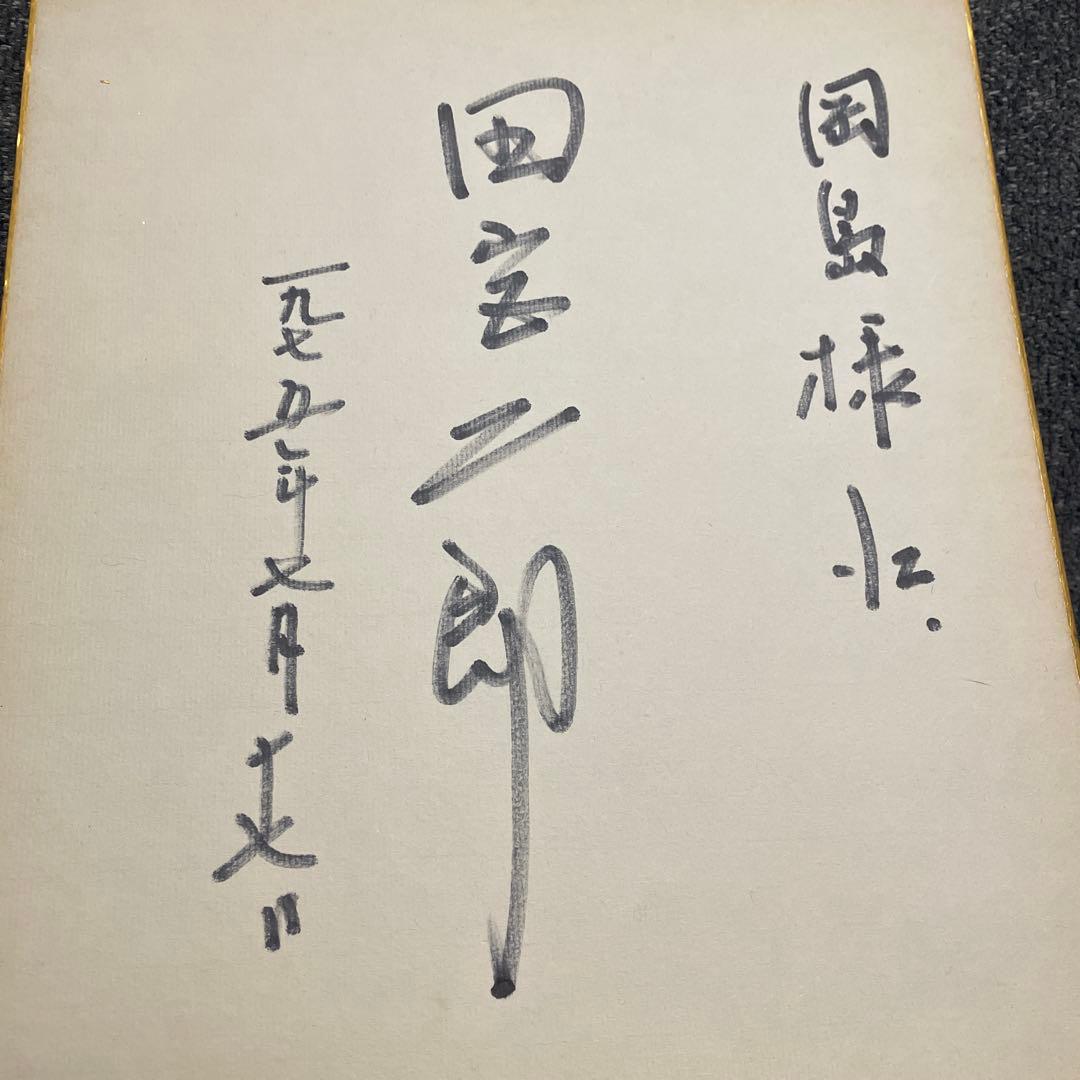 岡島様江.
田宮二郎
一九七五年七月十七日